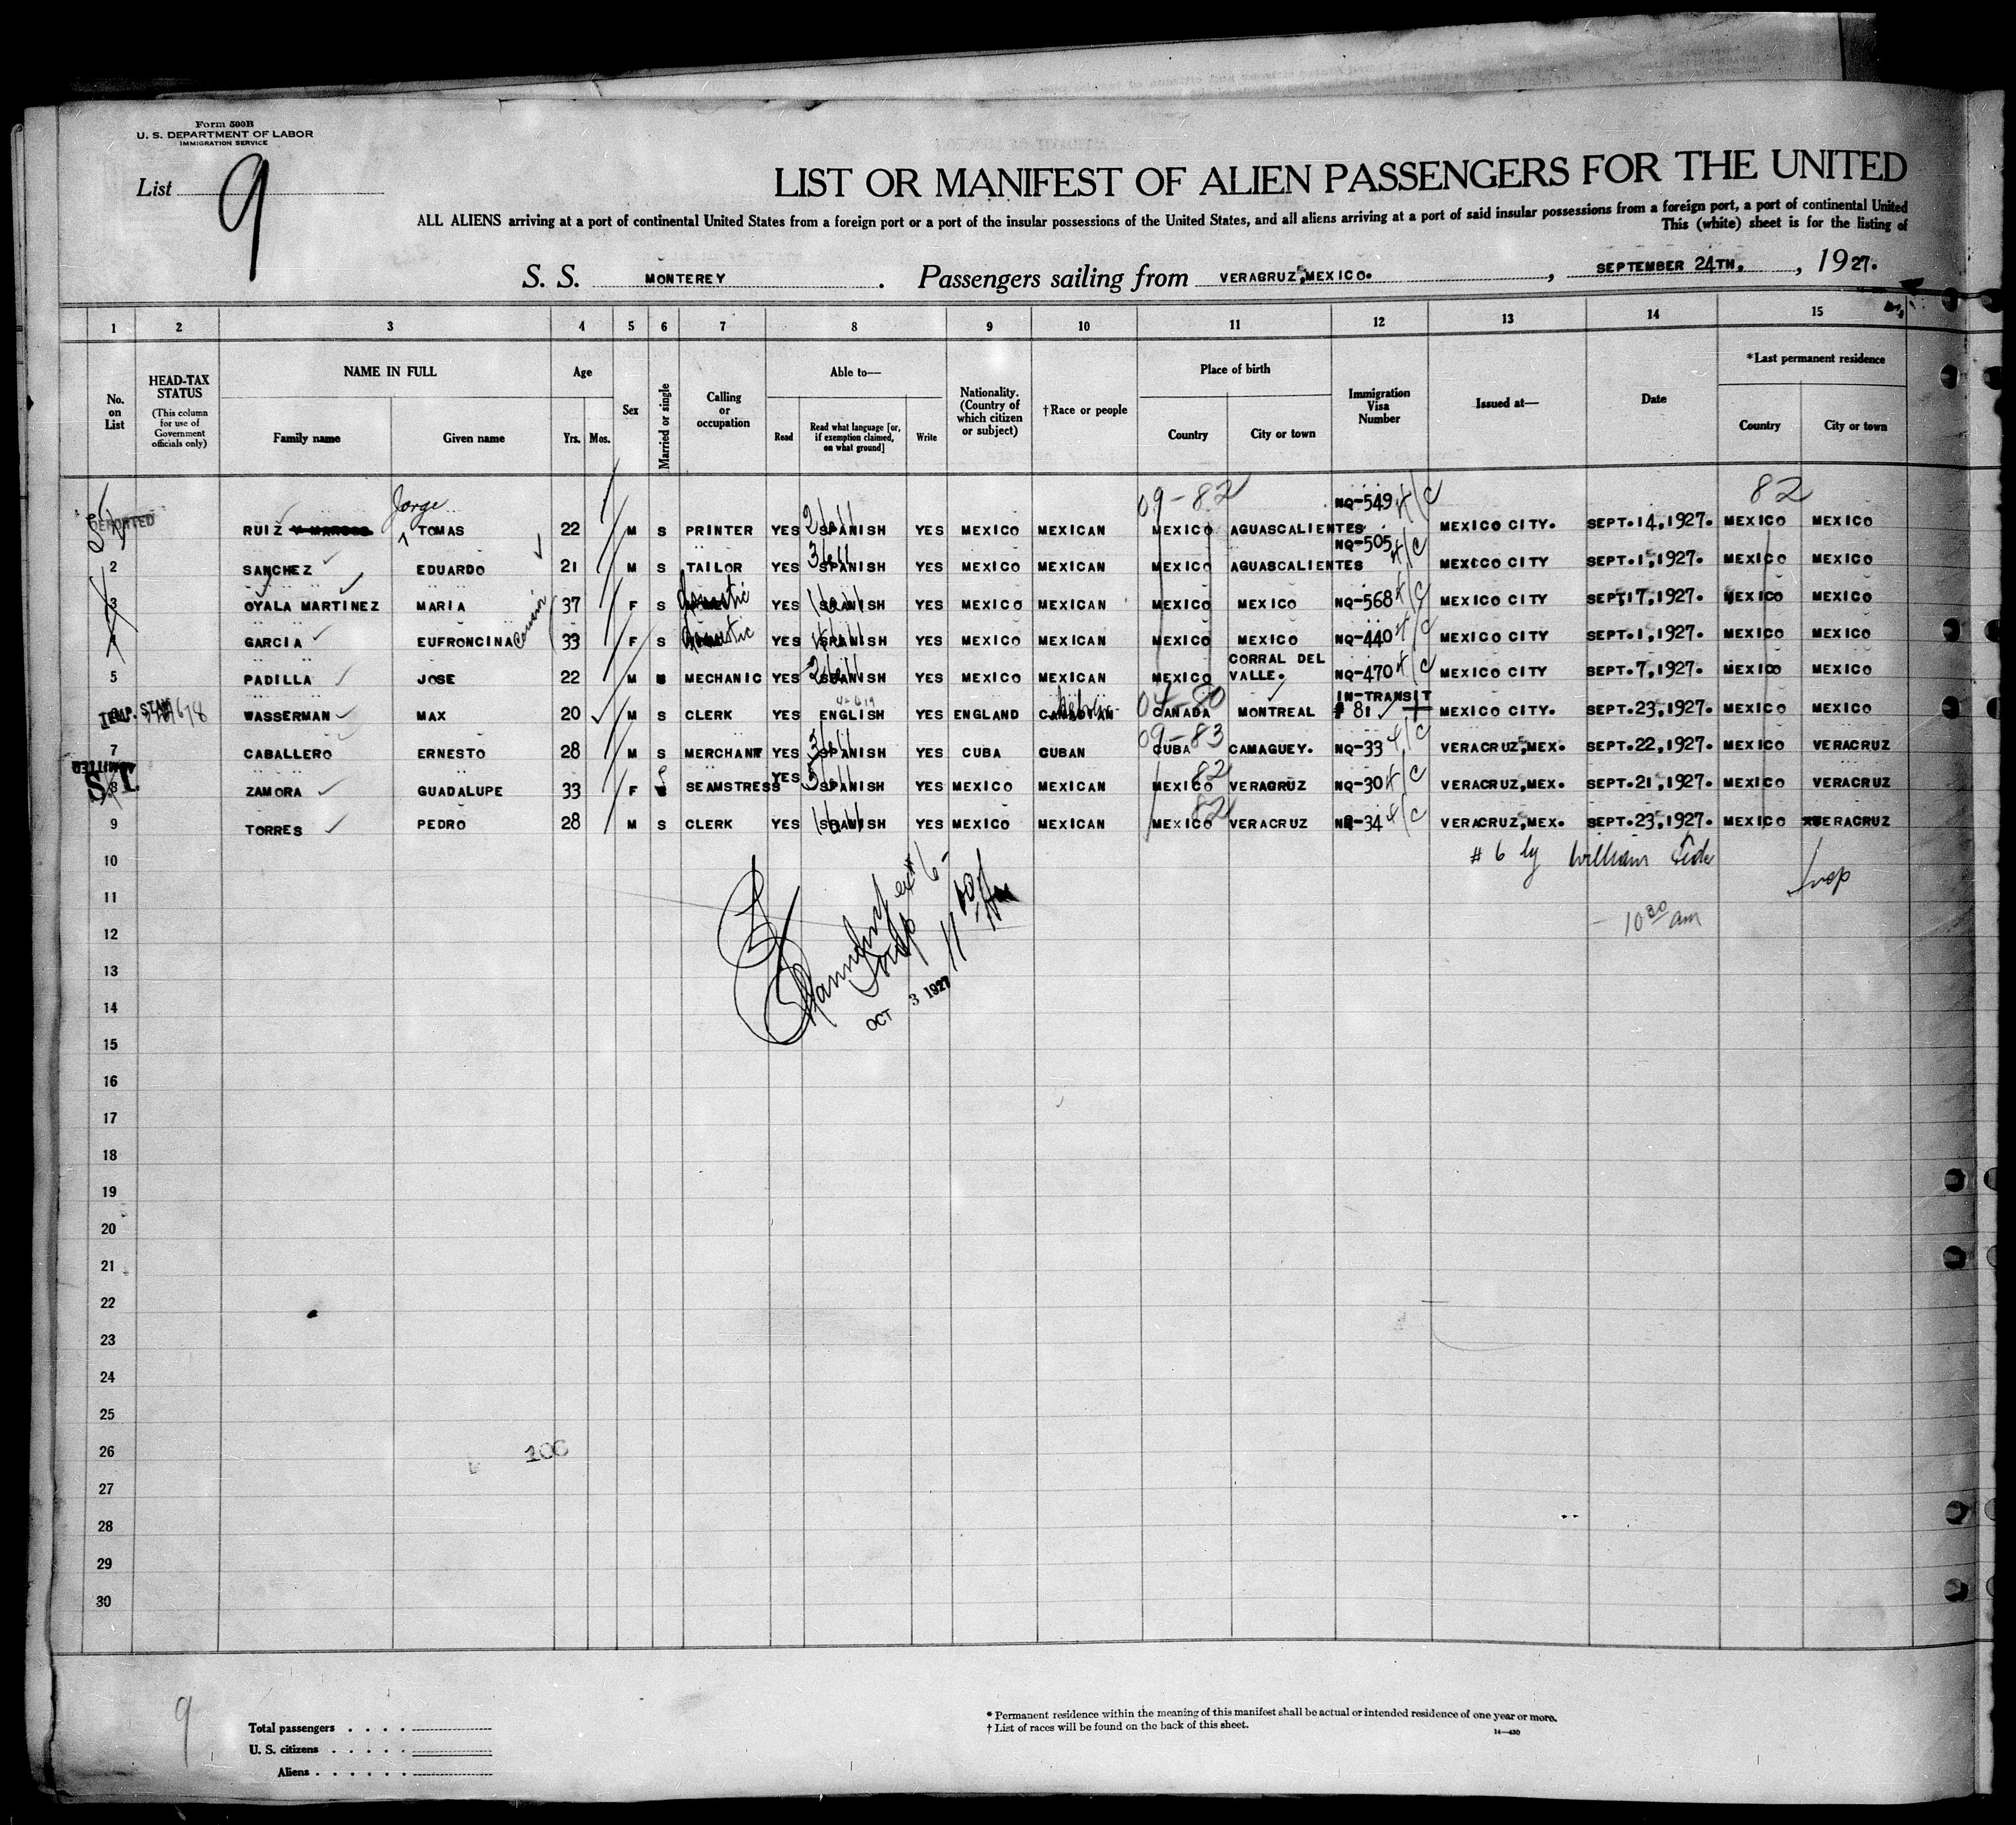 Form 500B
U. S. DEPARTMENT OF LABOR
IMMIGRATION SERVICE
List 9
LIST OR MANIFEST OF ALIEN PASSENGERS FOR THE UNITED
ALL ALIENS arriving at a port of continental United States from a foreign port or a port of the insular possessions of the United States, and all aliens arriving at a port of said insular possessions from a foreign port, a port of continental United
This (white) sheet is for the listing of
S. S. MONTEREY. Passengers sailing from VERACRUZ, MEXICO. , SEPTEMBER 24TH. , 1927.
1 2 3 4 5 6 7 8 9 10 11 12 13 14 15
No. on List
HEAD-TAX STATUS
(This column for use of Government officials only)
NAME IN FULL
Family name
Given name
Age
Yrs. Mos.
Sex
Married or single
Calling or occupation
Able to—
Read
Read what language [or, if exemption claimed, on what ground]
Write
Nationality. (Country of which citizen or subject)
†Race or people
Place of birth
Country
City or town
Immigration Visa Number
Issued at—
Date
*Last permanent residence
Country
City or town
09-82 82
Jorge
DEPORTED RUIZ TOMAS 22 M S PRINTER YES SPANISH YES MEXICO MEXICAN MEXICO AGUASCALIENTES NQ-549 MEXICO CITY. SEPT.14,1927. MEXICO MEXICO
2 SANCHEZ EDUARDO 21 M S TAILOR YES SPANISH YES MEXICO MEXICAN MEXICO AGUASCALIENTES NQ-505 MEXICO CITY SEPT.1,1927. MEXICO MEXICO
3 OYALA MARTINEZ MARIA 37 F S Domestic YES SPANISH YES MEXICO MEXICAN MEXICO MEXICO NQ-568 MEXICO CITY SEPT17,1927. MEXICO MEXICO
4 GARCIA EUFRONCINA Cousin 33 F S Domestic YES SPANISH YES MEXICO MEXICAN MEXICO MEXICO NQ-440 MEXICO CITY SEPT.1,1927. MEXICO MEXICO
5 PADILLA JOSE 22 M S MECHANIC YES SPANISH YES MEXICO MEXICAN MEXICO CORRAL DEL VALLE. NQ-470 MEXICO CITY SEPT.7,1927. MEXICO MEXICO
WASSERMAN MAX 20 M S CLERK YES ENGLISH YES ENGLAND Hebrew 04-80 CANADA MONTREAL IN-TRANSIT # 81 MEXICO CITY. SEPT.23,1927. MEXICO MEXICO
7 CABALLERO ERNESTO 28 M S MERCHANT YES SPANISH YES CUBA CUBAN 09-83 CUBA CAMAGUEY. NQ-33 VERACRUZ,MEX. SEPT.22,1927. MEXICO VERACRUZ
ADMITTED S.I.
8 ZAMORA GUADALUPE 33 F S SEAMSTRESS YES SPANISH YES MEXICO MEXICAN 82 MEXICO VERACRUZ NQ-30 VERACRUZ,MEX. SEPT.21,1927. MEXICO VERACRUZ
9 TORRES PEDRO 28 M S CLERK YES SPANISH YES MEXICO MEXICAN 82 MEXICO VERACRUZ NQ-34 VERACRUZ,MEX. SEPT.23,1927. MEXICO VERACRUZ
10
# 6 by William
Insp
11
10 30 am
12
13
OCT 3 1927
14
15
16
17
18
19
20
21
22
23
24
25
26
100
27
28
29
30
9
Total passengers . . . .
U. S. citizens . . . . .
Aliens . . . . . .
* Permanent residence within the meaning of this manifest shall be actual or intended residence of one year or more.
† List of races will be found on the back of this sheet.
14—430